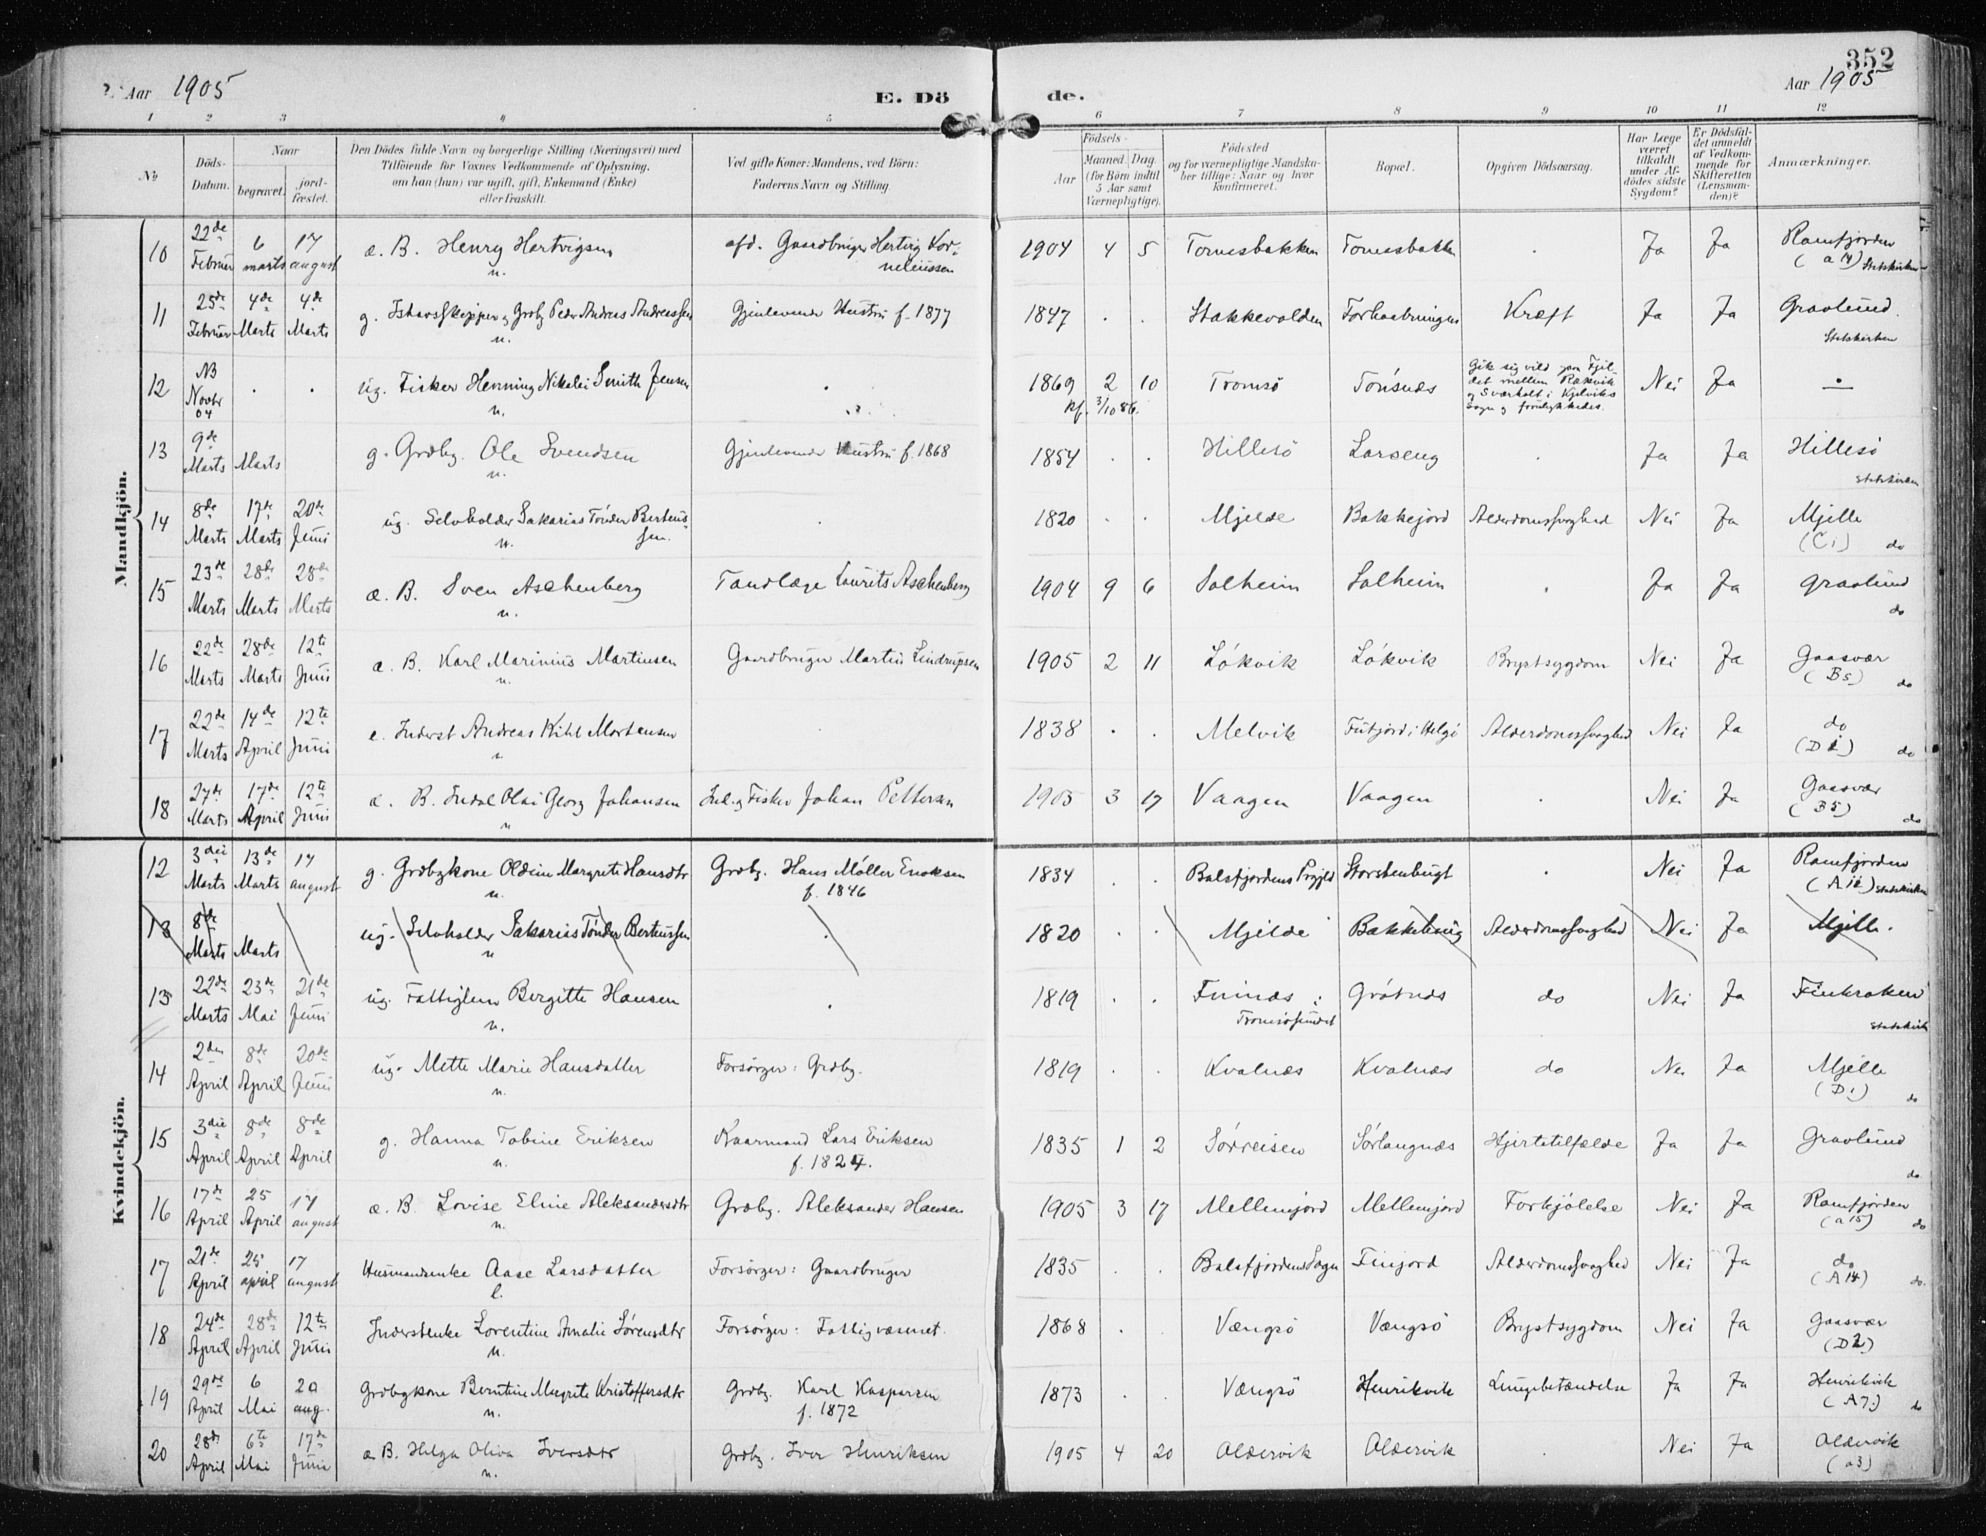 Aar 1905
E. Dö
de.
352
Aar 1905
1 2 3 4 5 6 7 8 9 10 11 12
No
Döds-Datum.
Naar
begravet.
jord-fæstet.
Den Dödes fulde Navn og borgerlige Stilling (Næringsvei) med
Tilföiende for Voxnes Vedkommende af Oplysning,
om han (hun) var ugift, gift, Enkemand (Enke)
eller fraskilt.
Ved gifte Koner: Mandens, ved Börn:
Faderens Navn og Stilling.
Födsels-
Aar
Maaned. Dag.
(for Börn indtil
5 Aar samt
Værnepligtige).
Födested
og for værnepligtige Mandska-
ber tillige: Naar og hvor
konfirmeret.
Bopæl.
Opgiven Dödsaarsag.
Har Læge
været
tilkaldt
under Af-
dödes sidste
Sygdom?
Er Dödsfal-
det anmeldt
af Vedkom-
mende for
Skifteretten
(Lensman-
den)?
Anmærkninger.
Mandkjön.
10 22de Februar 6 marts 17 august æ. B. Henry Hartvigsen n. afd. Gaardbruger Hertvig Kor-neliussen 1904 4 5 Tomasbakken Tomasbakken . Ja Ja Ramfjorden (a 14) Statskirken
11 25de Februar 4de Marts 4de Marts g. Ishavsskipper og Grdbg Peder Andreas Andreassen n. Gjenlevende Hustru f. 1877 1847 . . Stakkevolden Forhaabningen Kræft Ja Ja Gravlund. Statskirken
12 NB Novbr 04 . . ug. Fisker Henning Nikolai Smith Jensen n. . 1869 2 10 kf. 3/10 86. Tromsö Tönsnæs Gik sig vild paa Fjel-det mellem Rækvik og Sværholt i Kjelviks Sogn og forulykkedes. Nei Ja -
13 9de Marts Marts g. Grdbg. Ole Svendsen n. Gjenlevende Hustru f. 1868 1854 . . Hillesö Larseng . Ja Ja Hillesö Statskirken
14 8de Marts 17de Marts 20de Juni ug. Selvholder Sakarias Tönder Bertheus-sen. n. . 1820 . . Mjelde Bakkejord Alderdomssvaghed Nei Ja Mjelle (C1) do
15 23de Marts 28de Marts 28de Marts æ. B. Sven Aschenberg n. Tandlæge Laurits Aschenberg 1904 9 6 Solheim Solheim . Ja Ja Gravlund do
16 22de Marts 28de Marts 12te Juni æ. B. Karl Marinius Martinsen n. Gaardbruger Martin Lindrupsen 1905 2 11 Lökvik Lökvik Brystsygdom Nei Ja Gaasvær (B5) do
17 22de Marts 14de April 12te Juni e. Inderst Andreas Kihl Mortensen n . 1838 . . Melvik Futfjord i Helgö Alderdomssvaghed Nei Ja do do
18 27de Marts 17de April 12te Juni æ. B. Endal Olai Georg Johansen n Ind. og Fisker Johan Pettersen 1905 3 17 Vaagen Vaagen . Nei Ja Gaasvær (B5) do
Kvindekjön.
12 3die Marts 13de Marts 17 august g. Grdbgkone Oldine Margrete Hansdtr n. Grdbg. Hans Möller Enoksen f. 1846 1834 . . Balsfjordens Prgjld Storstenbugt . Nei Ja Ramfjorden Statskirken
13 8de Marts Marts ug. Selvholder Sakarias Tönder Bertheussen n . 1820 . . Mjelde Alderdomssvaghed Nei Ja Mjelle.
13 22de Marts 23de Mai 21de Juni ug. Fattiglem Bergitte Hansen n. . 1819 . . Finnæs i Tromsösundet Grötnæs do Nei Ja Finkroken Statskirk
14 2den April 8de April 20de Juni ug. Mette Marie Hansdatter n. Forsörger: Grdbg. 1819 . . Kvalnæs Kvalnæs do Nei Ja Mjelle (D1) do
15 3die April 8de April 8de April g. Hanna Tobine Eriksen n. Kaarmand Lars Eriksen f. 1824. 1835 1 2 Sörreisen Sörlangnæs Hjertetilfælde Ja Ja Gravlund do
16 17de April 25 April 17 august æ. B. Lovise Eline Aleksandersdtr n. Grdbg. Aleksander Hansen 1905 3 17 Mellemjord Mellemjord Forkjölelse Nei Ja Ramfjorden (a 15) do
17 21de April 25 april 17 august Husmandsenke Aase Larsdatter l. Forsörger: Gaardbruger 1835 . . Balsfjordens Sogn Finjord Alderdomssvaghed Nei Ja do (A 14) do.
18 24de April 28de April 12te Juni Inderstenke Lorentine Amalie Sörensdtr n. Forsörger: Fattigvæsenet. 1868 . Vængsö Vængsö Brystsygdom Nei Ja Gaasvær (D2)
19 29de April 6 Mai 20 aug. Grdbgkone Berntine Margrete Kristoffersdtr n. Grdbg. Karl Kaspersen f. 1872 1873 . . Vængsö Henrikvik Lungebetændelse Ja Ja Henrikvik (A7.) do
20 28de April 6te Mai 17de Juni æ B. Helga Oliva Iversdtr n. Grdbg. Iver Henriksen 1905 4 20 Oldervik Oldervik . Nei Ja Oldervik (a3)